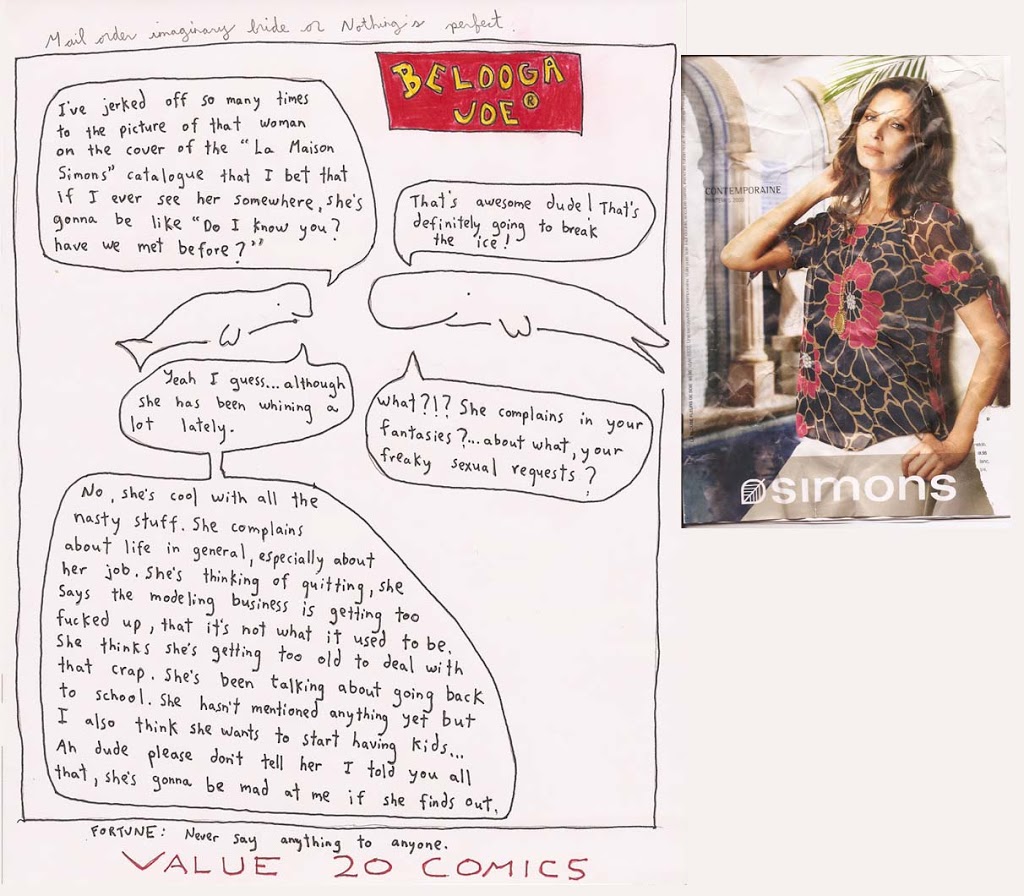 Mail order imaginary bride or Nothing's perfect.
BELOOGA
JOE®
I've jerked off so many times
to the picture of that woman
on the cover of the "La Maison
Simons" catalogue that I bet that
if I ever see her somewhere, she's
gonna be like "Do I know you?
have we met before?"
That's awesome dude! That's
definitely going to break
the ice!
Yeah I guess... although
she has been whining a
lot lately.
What?!? She complains in your
fantasies?... about what, your
freaky sexual requests?
No, she's cool with all the
nasty stuff. She complains
about life in general, especially about
her job. She's thinking of quitting, she
says the modeling business is getting too
fucked up, that it's not what it used to be.
She thinks she's getting too old to deal with
that crap. She's been talking about going back
to school. She hasn't mentioned anything yet but
I also think she wants to start having kids...
Ah dude please don't tell her I told you all
that, she's gonna be mad at me if she finds out.
FORTUNE: Never say anything to anyone.
VALUE 20 COMICS
CONTEMPORAINE
simons